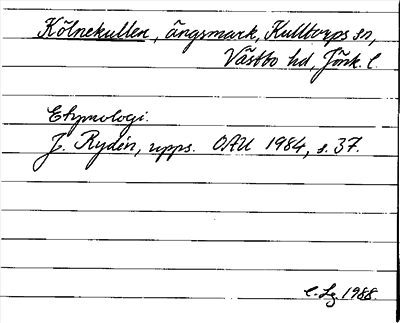 Kölnekullen, ängsmark, Kulltorps sn,
Västbo hd, Jönk. l.
Etymologi.
J. Rydén, upps. OAU 1984, s. 37.
1988.